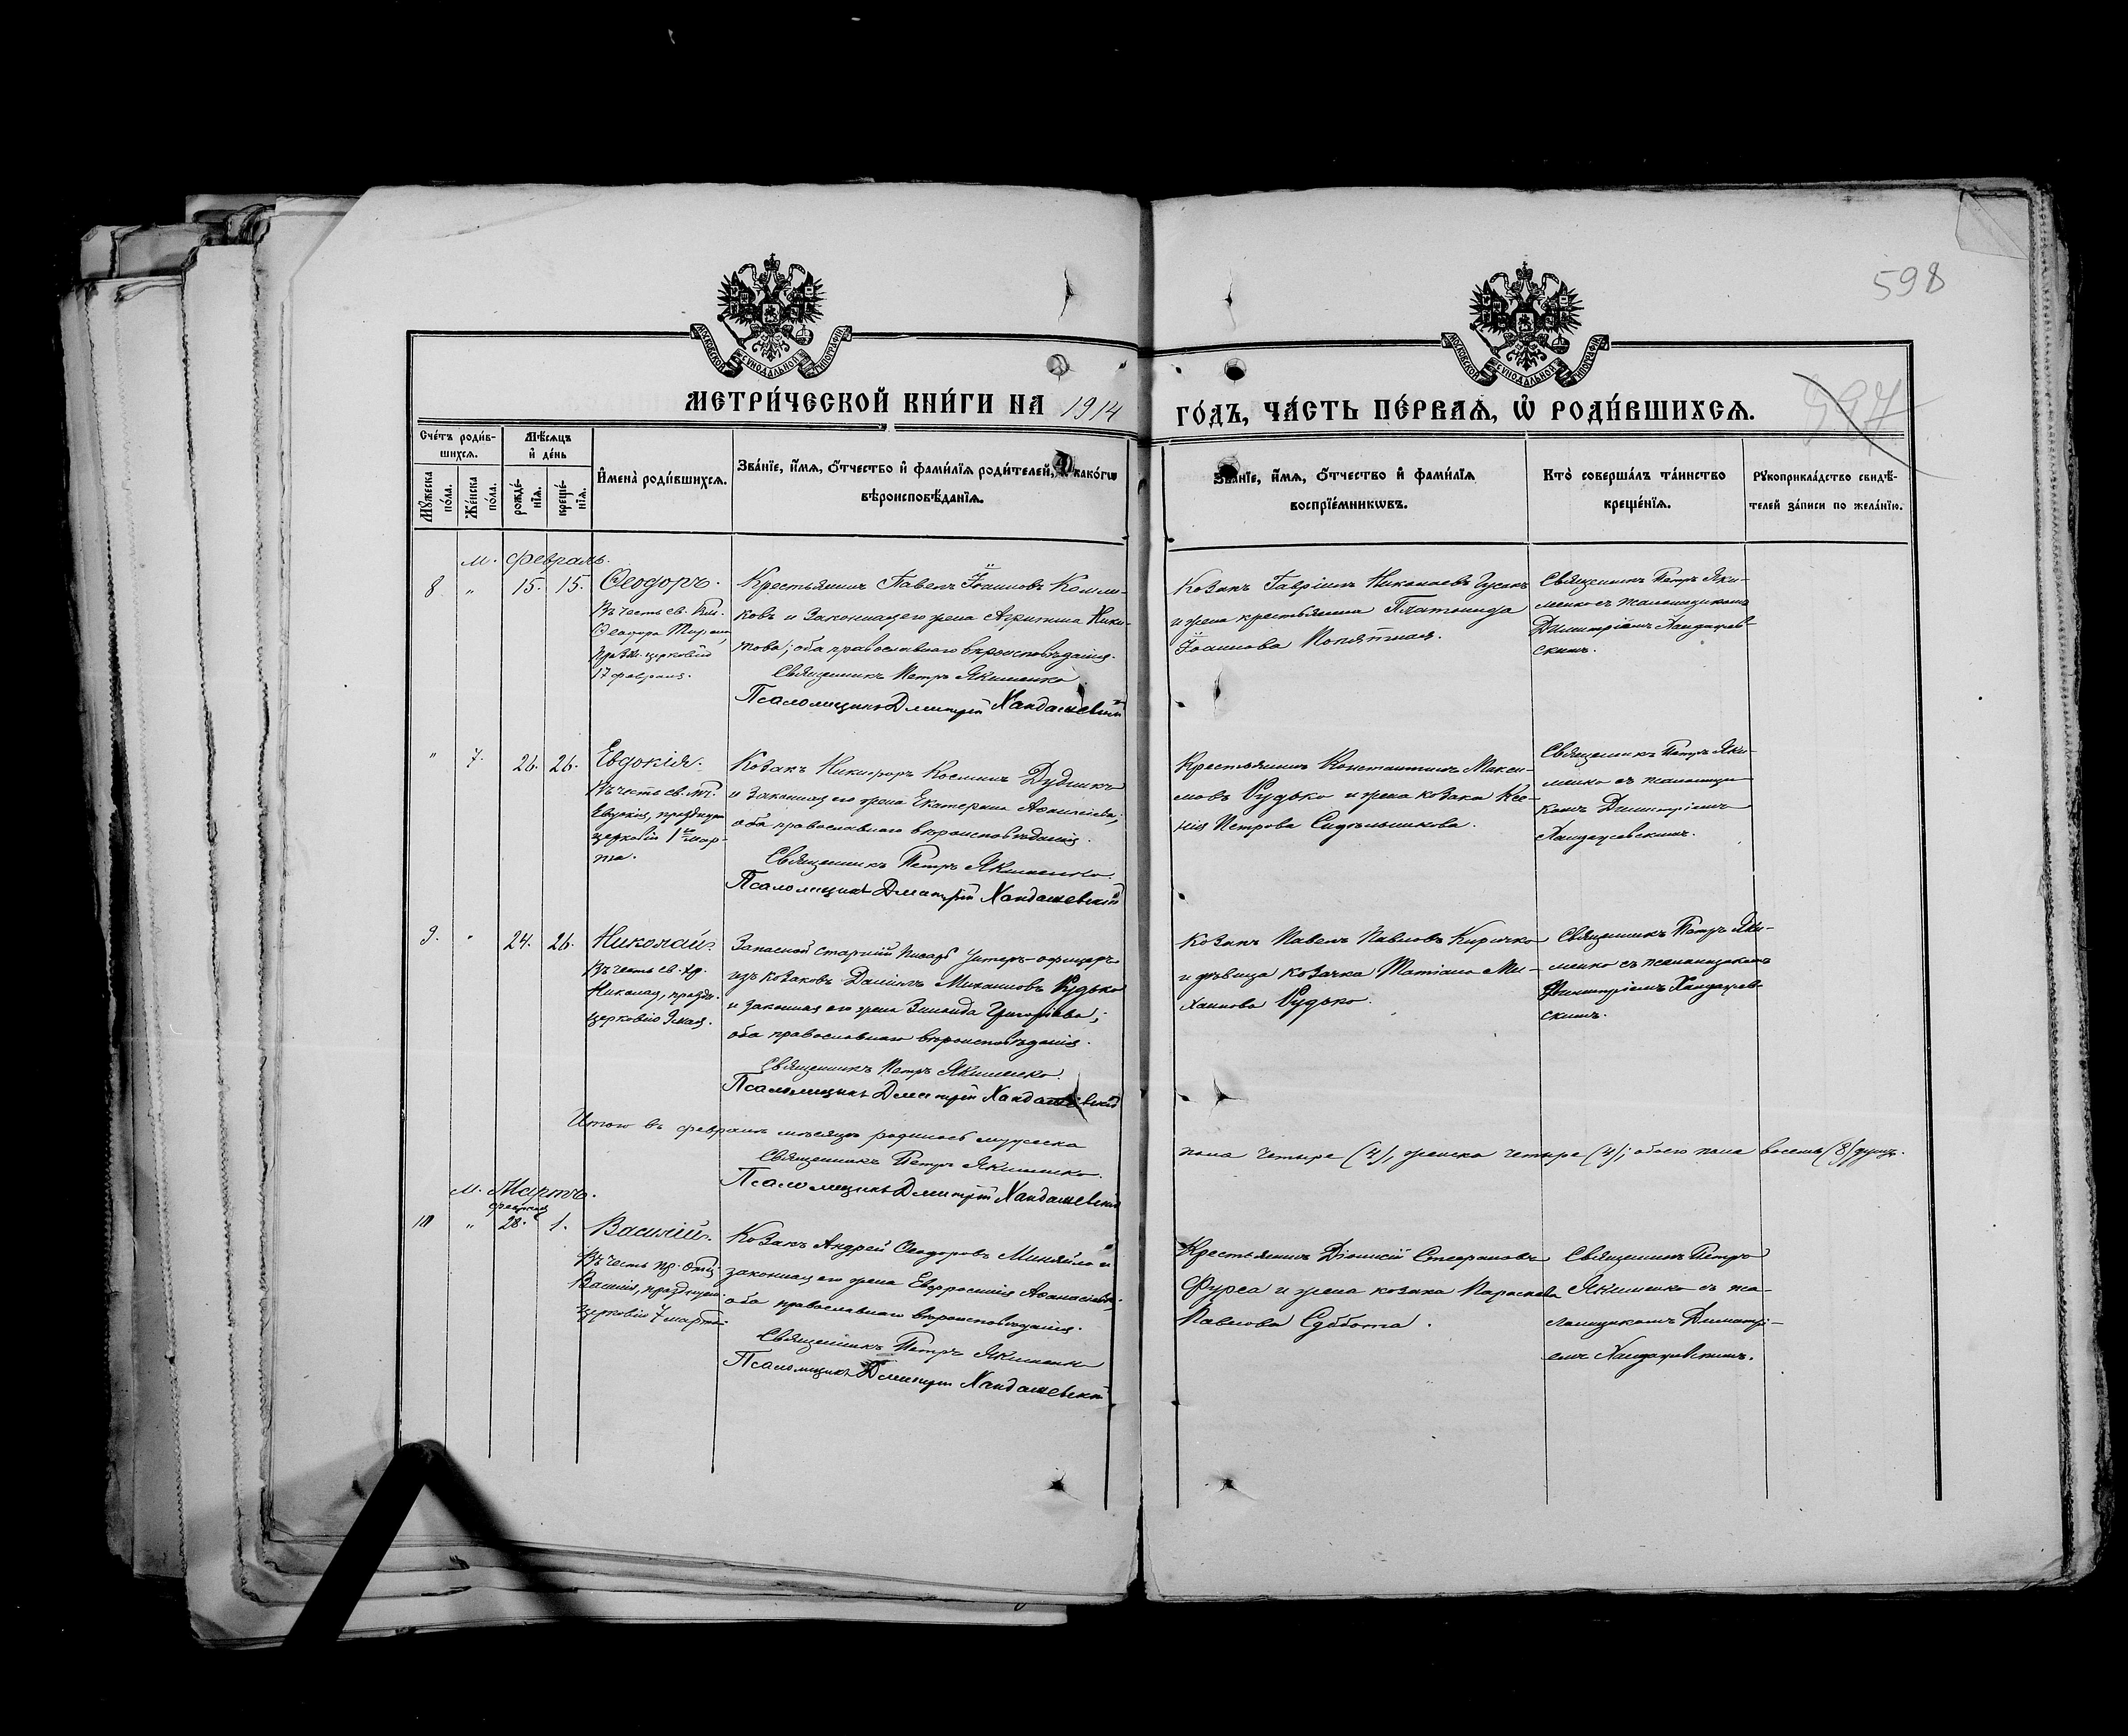 598
597
МОСКОВСКОЙ СУНОДАЛЬНОЙ ТИПОГРАФІИ
МОСКОВСКОЙ СУНОДАЛЬНОЙ ТИПОГРАФІИ
МЕТРИ́ЧЕСКОЙ КНИ́ГИ НА 1914 ГО́ДЪ, ЧА́СТЬ ПЕ́РВАѦ, Ѽ РОДИ́ВШИХСѦ.
Сче́тъ роди́в-
шихсѧ.
Мꙋ́жеска по́ла.
Же́нска по́ла.
Мѣ́сѧцъ
и҆ де́нь
рожде́-
нїѧ.
креще́-
нїѧ.
И҆мена̀ роди́вшихсѧ.
Зва́нїе, и҆́мѧ, ѻ҆́тчество и҆ фами́лїѧ роди́телей, и҆ како́гѡ
вѣроисповѣ́данїѧ.
Зва́нїе, и҆́мѧ, ѻ҆́тчество и҆ фами́лїѧ
воспрїе́мникѡвъ.
Кто̀ соверша́лъ та́инство
креще́нїѧ.
Рꙋкоприкла́дство свидѣ́-
телей за́писи по жела́нїю.
м. Февраль.
8. " 15. 15. Ѳеодоръ.
Въ честь св. Вм.
Ѳеодора Тирона,
праздн. церковію
17 февраля.
Крестьянинъ Павелъ Іоанновъ
ковъ и законная его жена Агрипина Ники-
това; оба православнаго вѣроисповѣданія.
Священникъ Петръ Якименко
Псаломщикъ Дмитрій Хандашевскій
Козакъ Гавріилъ Николаевъ Гусакъ
и жена крестьянина Платонида
Іоаннова
Священникъ Петръ Яки-
менко съ псаломщикомъ
Димитріемъ Хандашев-
скимъ.
" 7. 26. 26. Евдокія.
Въ честь св. мч.
Евдокіи, празднуем.
церковію 1го мар-
та.
Козакъ Никифоръ Косминъ Дудникъ
и законная его жена Екатерина
оба православнаго вѣроисповѣданія.
Священникъ Петръ Якименко.
Псаломщикъ Дмитрій Хандашевскій
Крестьянинъ Константинъ Макси-
мовъ Рудько и жена козака Ксе-
нія Петрова Сидельникова.
Священникъ Петръ Яки-
менко съ псаломщи-
комъ Димитріемъ
Хандашевскимъ.
9. " 24. 26. Николай.
Въ честь св. Хр.
Николая, праздн.
церковію 9 мая.
Запасной старшій писарь Унтеръ-офицеръ
изъ козаковъ Даніилъ Михаиловъ Рудько
и законная его жена Зинаида Григоріева;
оба православнаго вѣроисповѣданія.
Священникъ Петръ Якименко.
Псаломщикъ Дмитрій Хандашевскій
Козакъ Павелъ Павловъ Киричко
и дѣвица козачка Татіана Ми-
хаилова Рудько.
Священникъ Петръ Яки-
менко съ псаломщикомъ
Димитріемъ Хандашев-
скимъ.
Итого въ февралѣ мѣсяцѣ родилось мужеска пола четыре (4), женска четыре (4); обоего пола восемь (8) душъ.
Священникъ Петръ Якименко.
Псаломщикъ Дмитрій Хандашевскій
м. Мартъ.
февраля
10 " 28. 1. Василій.
Въ честь пр. отца
Василія, празднуем.
церковію 7 марта.
Козакъ Андрей Ѳеодоровъ Миняйло и
законная его жена Евфросинія Аѳанасіева;
оба православнаго вѣроисповѣданія.
Священникъ Петръ Якименко
Псаломщикъ Дмитрій Хандашевскій
Крестьянинъ Діонисій Стефановъ
Фурса и жена козака Параскева
Павлова Суббота.
Священникъ Петръ
Якименко съ пса-
ломщикомъ Димитрі-
емъ Хандашевскимъ.